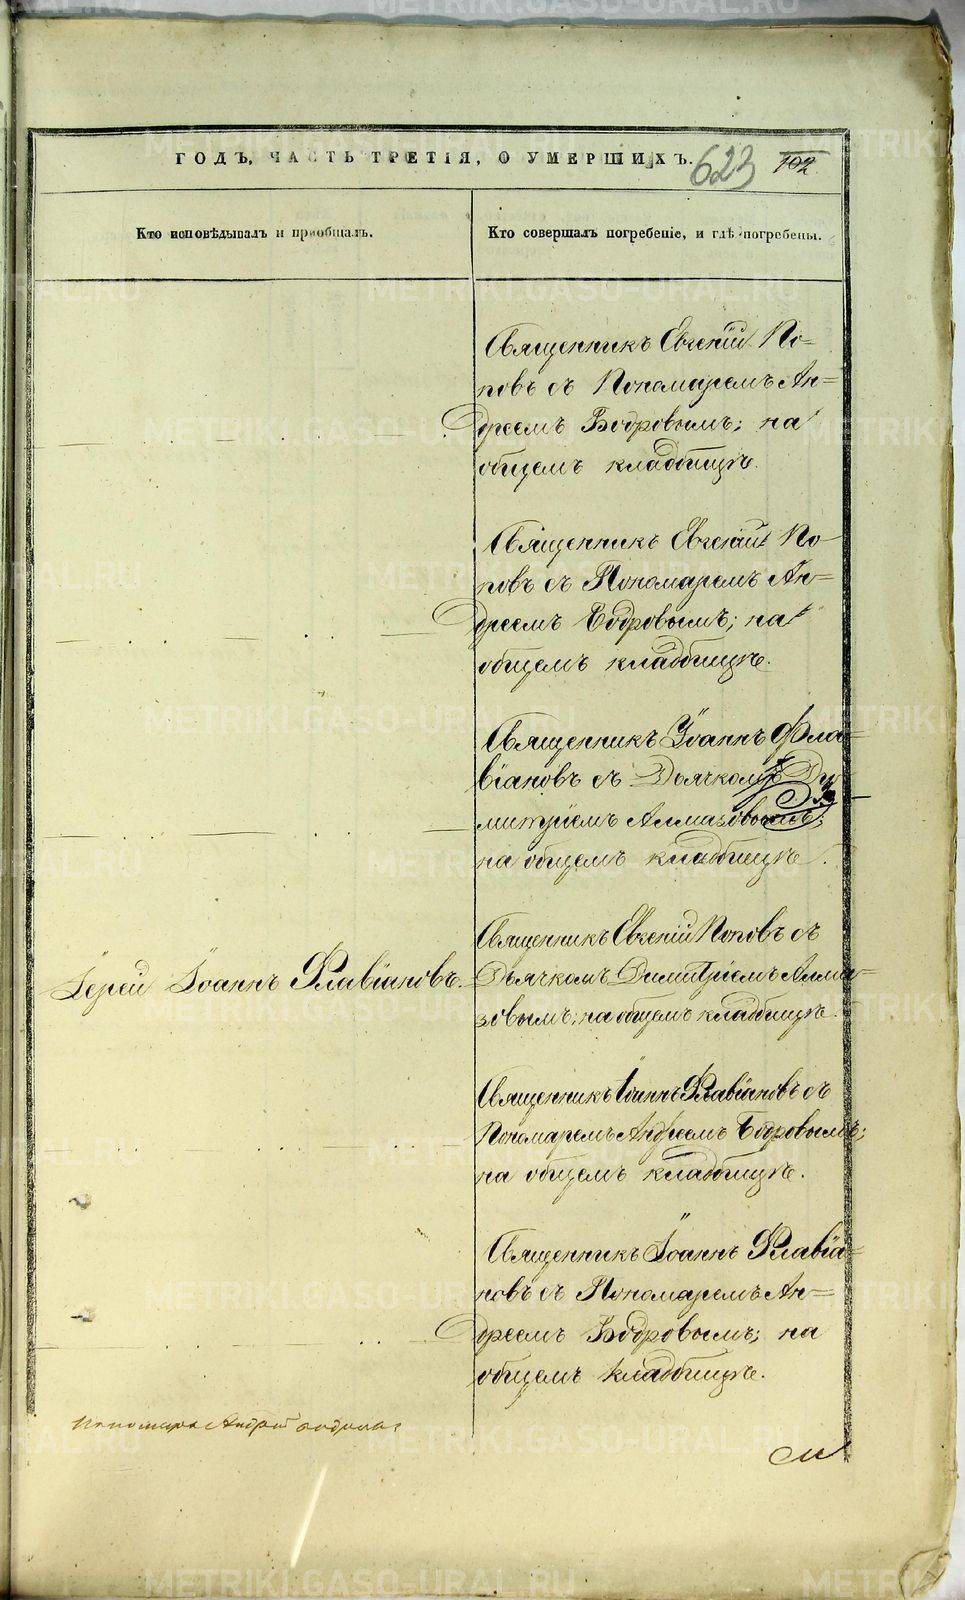 ГОДЪ, ЧАСТЬ ТРЕТІЯ, О УМЕРШИХЪ.
623
102
Кто исповѣдывалъ и пріобщалъ.
Кто совершалъ погребеніе, и гдѣ погребены.
Священникъ Евгеній По-
повъ съ Пономаремъ Ан=
дреемъ Бодровымъ; на
общемъ кладбищѣ.
Священникъ Евгеній По
повъ съ Пономаремъ Ан=
дреемъ Бодровымъ; на
общемъ кладбищѣ.
Священникъ Іоаннъ Фла=
віановъ съ Дьячкомъ Ди
митріемъ Алмазовымъ;
на общемъ кладбищѣ.
Іерей Іоаннъ Флавіановъ.
Священникъ Евгеній Поповъ съ
Дьячкомъ Димитріемъ Алма=
зовымъ; на общемъ кладбищѣ.
Священникъ Іоаннъ Флавіановъ съ
Пономаремъ Андреемъ Бодровымъ;
на общемъ кладбищѣ.
Священникъ Іоаннъ Флавіа=
новъ съ Пономаремъ Ан=
дреемъ Бодровымъ; на
общемъ кладбищѣ.
Пономарь Андрей
METRIKI.GASO-URAL.RU